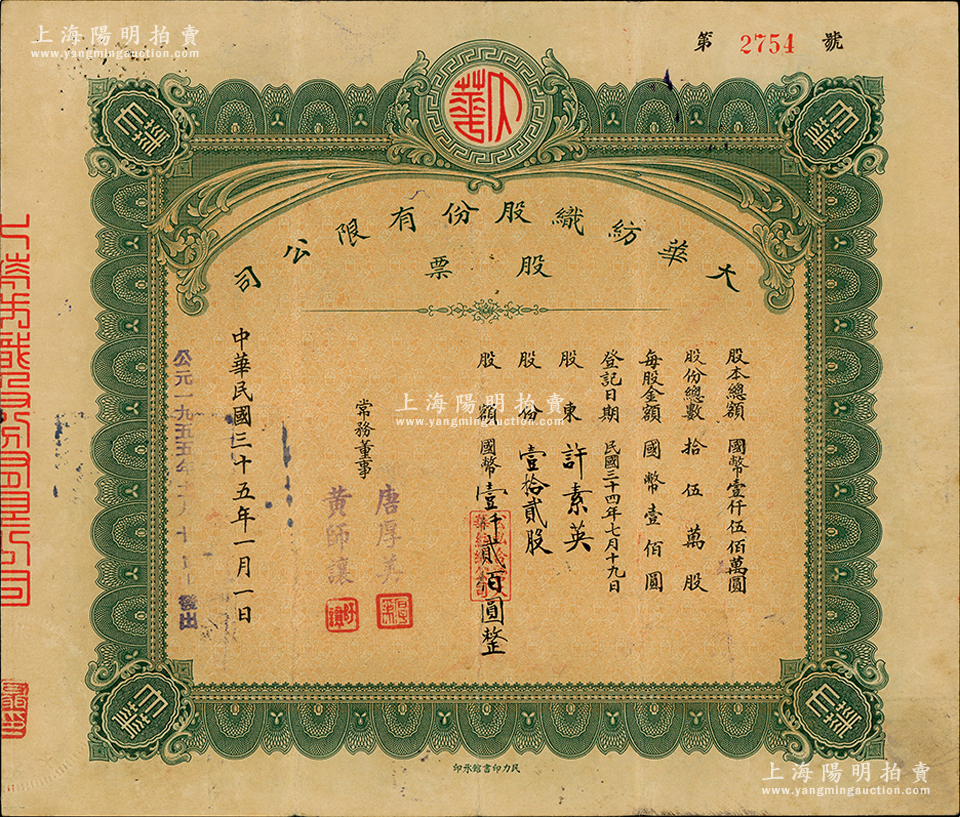 上海陽明拍賣
www.yangmingauction.com
第 2754 號
大華
大華紡織股份有限公司
股票
股本總額 國幣壹仟伍佰萬圓
股份總數 拾伍萬股
每股金額 國幣壹佰圓
登記日期 民國三十四年七月十九日
股東 許素英
股份 壹拾貳股
股額 國幣壹千貳百圓整
常務董事
唐厚美
黃師讓
中華民國三十五年一月一日
上海陽明拍賣
www.yangmingauction.com
民力印書館承印
上海陽明拍賣
www.yangmingauction.com